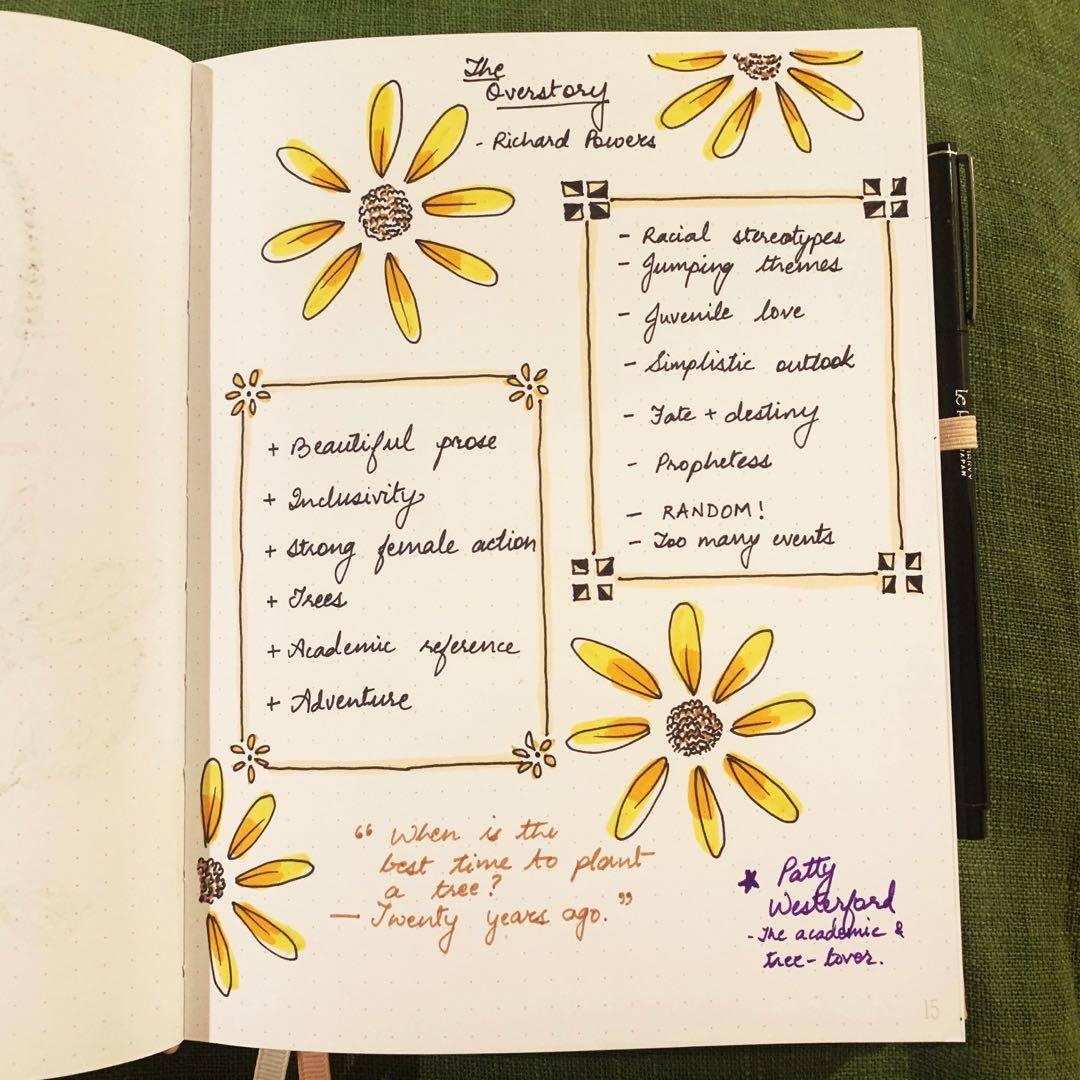 The
Overstory
- Richard Powers
- Racial stereotypes
- Jumping themes
- Juvenile love
- Simplistic outlook
- Fate + destiny
- Prophetess
- RANDOM!
- Too many events
+ Beautiful prose
+ Inclusivity
+ Strong female action
+ Trees
+ Academic reference
+ Adventure
“ When is the
best time to plant
a tree?
— Twenty years ago. ”
★ Patty
Westerford
- The academic &
tree-lover.
15
JAPAN